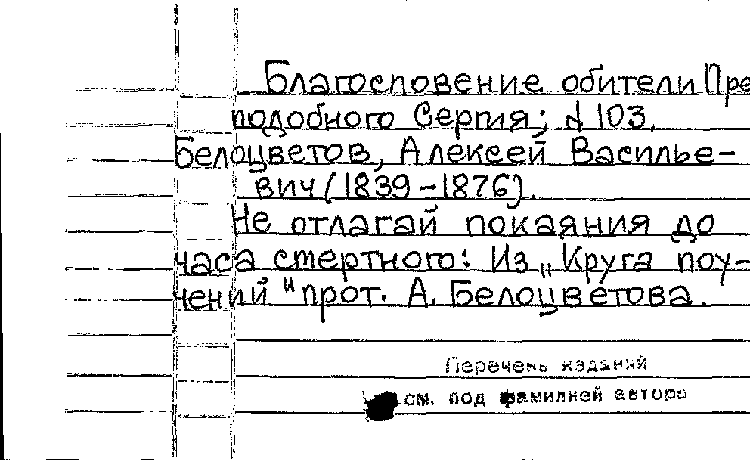 Благословение обители Пре
подобного Сергия; d 103.
Белоцветов, Алексей Василье-
вич (1839-1876).
Не отлагай покаяния до
часа смертного: Из „Круга поу-
чений" прот. А. Белоцветова.
Перечень изданий
см. под фамилией автора